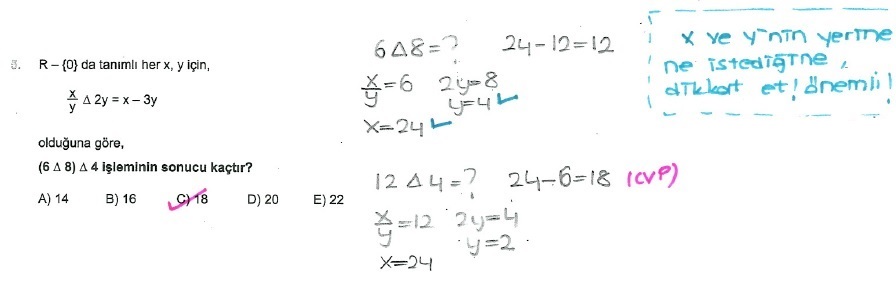 5. R – {0} da tanımlı her x, y için,
x/y Δ 2y = x – 3y
olduğuna göre,
(6 Δ 8) Δ 4 işleminin sonucu kaçtır?
A) 14 B) 16 C) 18 D) 20 E) 22
6Δ8=? 24-12=12
x/y=6 2y=8
y=4
x=24
12Δ4=? 24-6=18 (CVP)
x/y=12 2y=4
y=2
x=24
x ve y'nin yerine
ne istediğine
dikkat et! önemli!